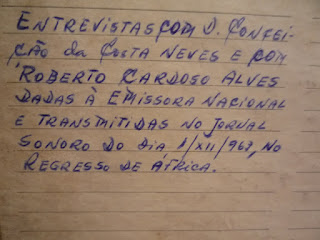 ENTREVISTAS COM D. CONCEI-
ÇÃO da COSTA NEVES E COM
ROBERTO CARDOSO ALVES
DADAS À EMISSORA NACIONAL
E TRANSMITIDAS NO JORNAL
SONORO DO DIA 1/XII/962, NO
REGRESSO DE ÁFRICA.